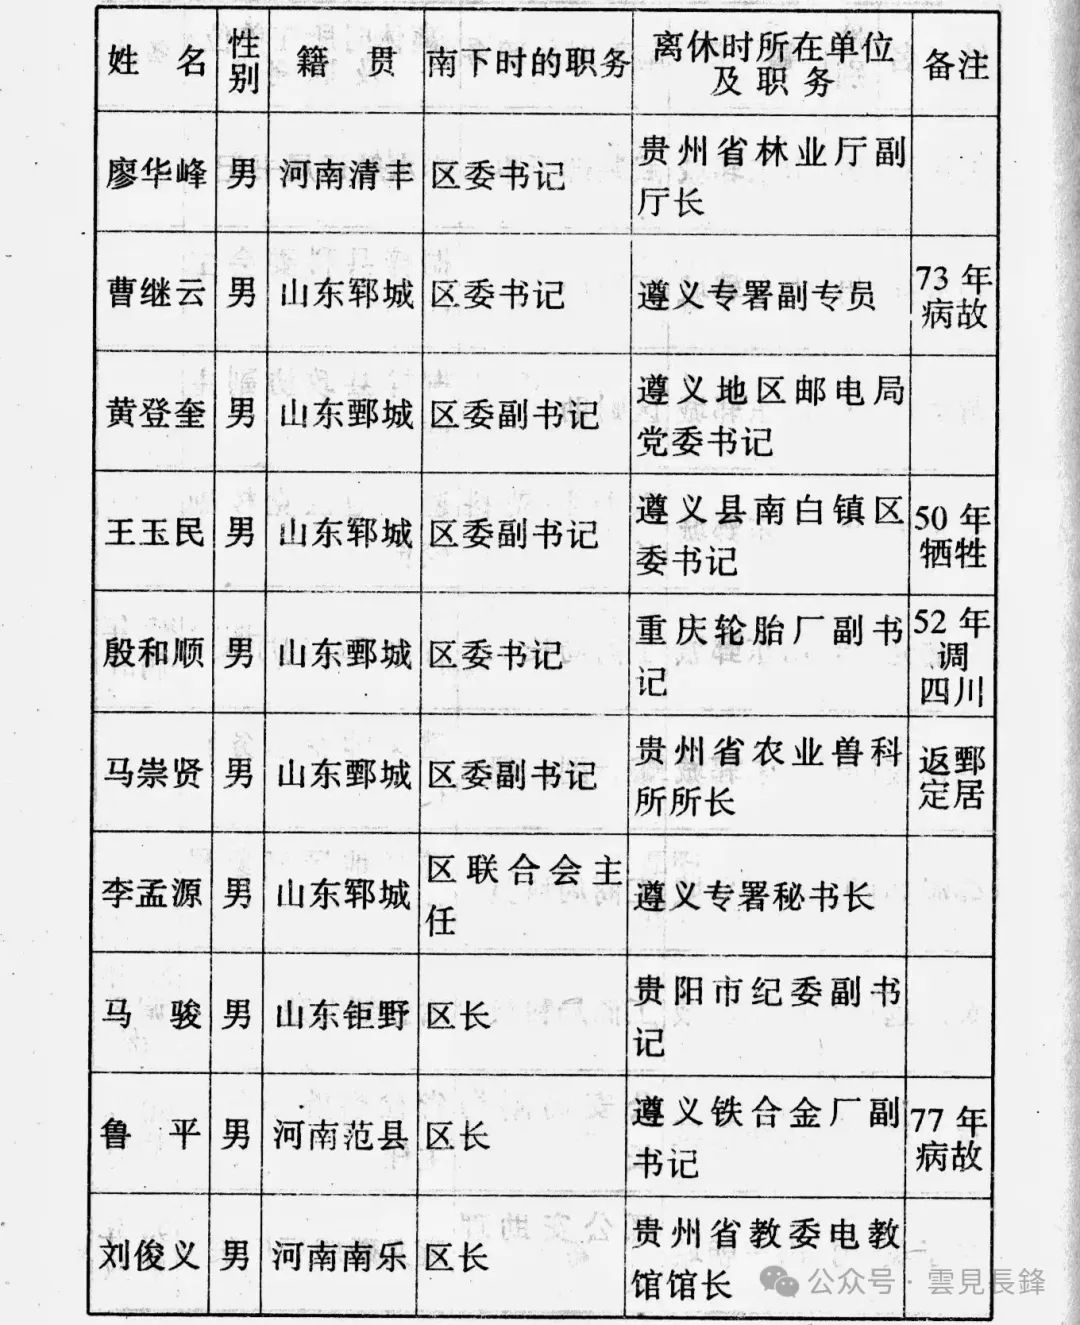 姓 名 性别 籍 贯 南下时的职务 离休时所在单位及职务 备注
廖华峰 男 河南清丰 区委书记 贵州省林业厅副厅长
曹继云 男 山东郓城 区委书记 遵义专署副专员 73年病故
黄登奎 男 山东鄄城 区委副书记 遵义地区邮电局党委书记
王玉民 男 山东郓城 区委副书记 遵义县南白镇区委书记 50年牺牲
殷和顺 男 山东鄄城 区委书记 重庆轮胎厂副书记 52年调四川
马崇贤 男 山东鄄城 区委副书记 贵州省农业兽科所所长 返鄄定居
李孟源 男 山东郓城 区联合会主任 遵义专署秘书长
马 骏 男 山东钜野 区长 贵阳市纪委副书记
鲁 平 男 河南范县 区长 遵义铁合金厂副书记 77年病故
刘俊义 男 河南南乐 区长 贵州省教委电教馆馆长
公众号·雲見長鋒